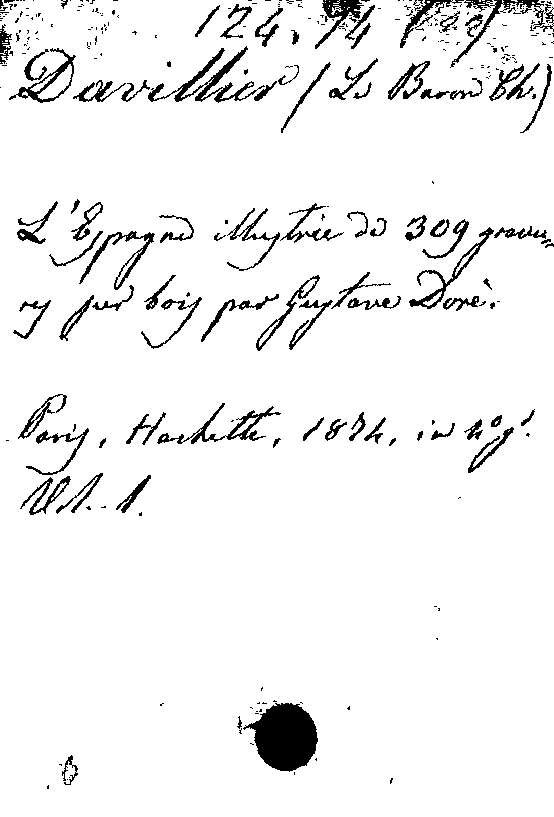 124.74 (22)
Davillier (Le Baron Ch.)
L'Espagne illustrée de 309 gravu=
res sur bois par Gustave Doré.
Paris, Hachette, 1874, in 4° gd.
Vol. 1.